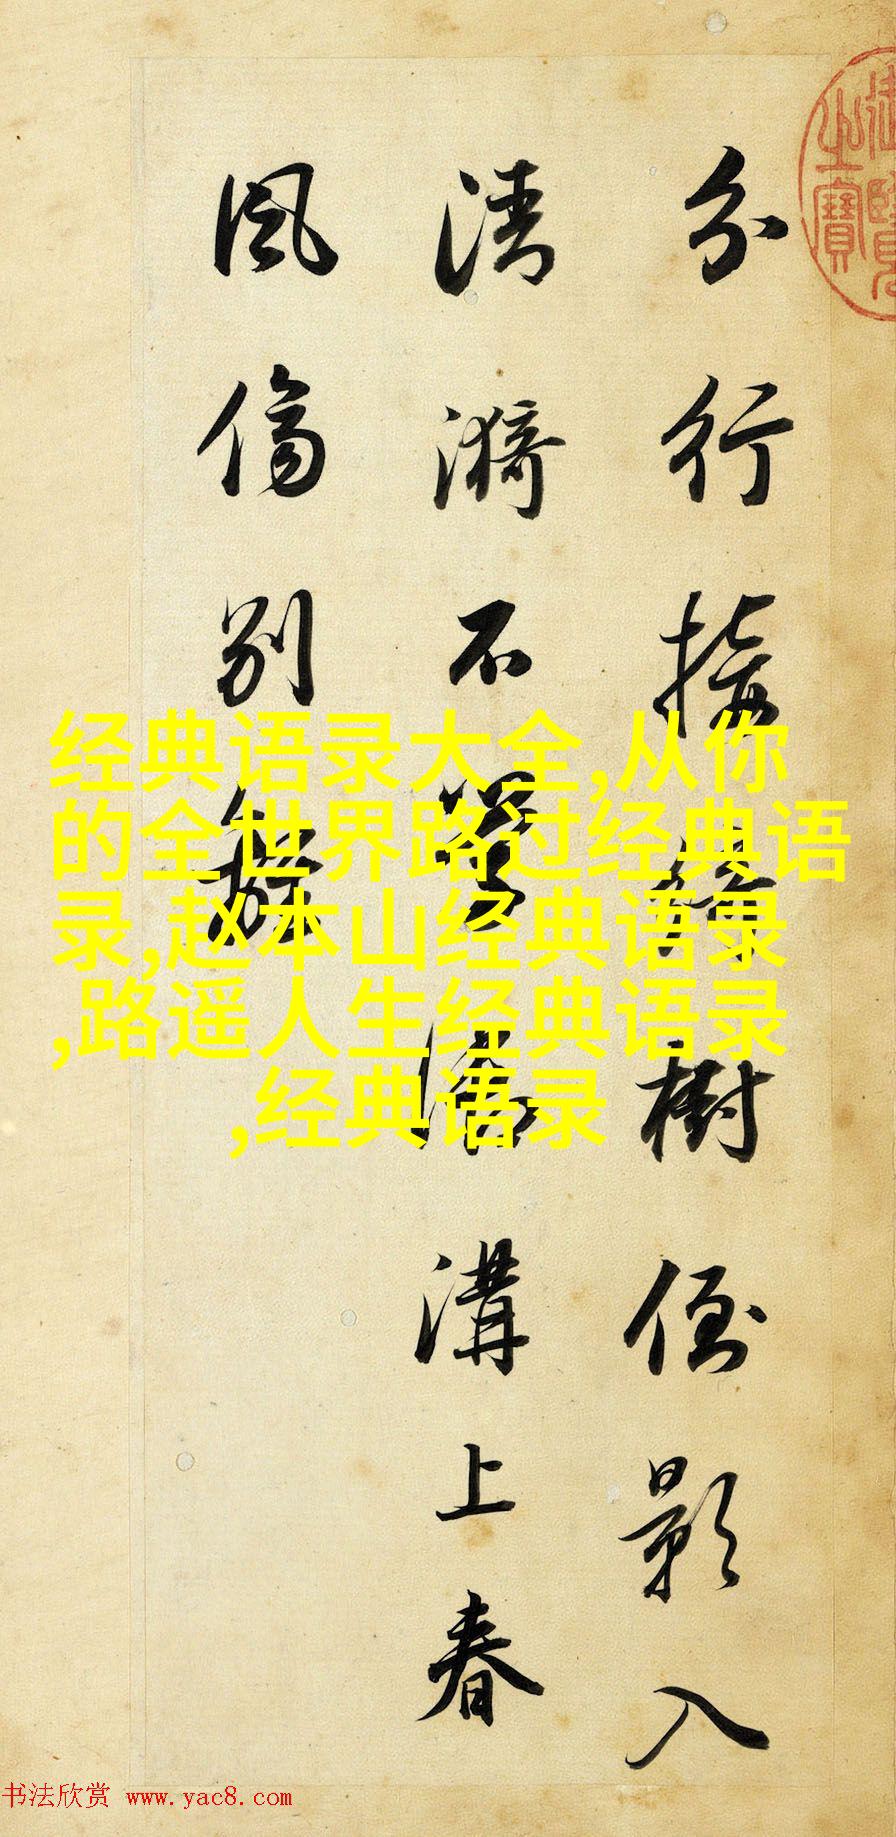 御覽
之寶
分行接綺樹倒影入
清漪不學御溝上春
風傷別離
经典语录大全,从你
的全世界路过经典语
录,赵本山经典语录
,路遥人生经典语录
,经典语录
书法欣赏 www.yac8.com